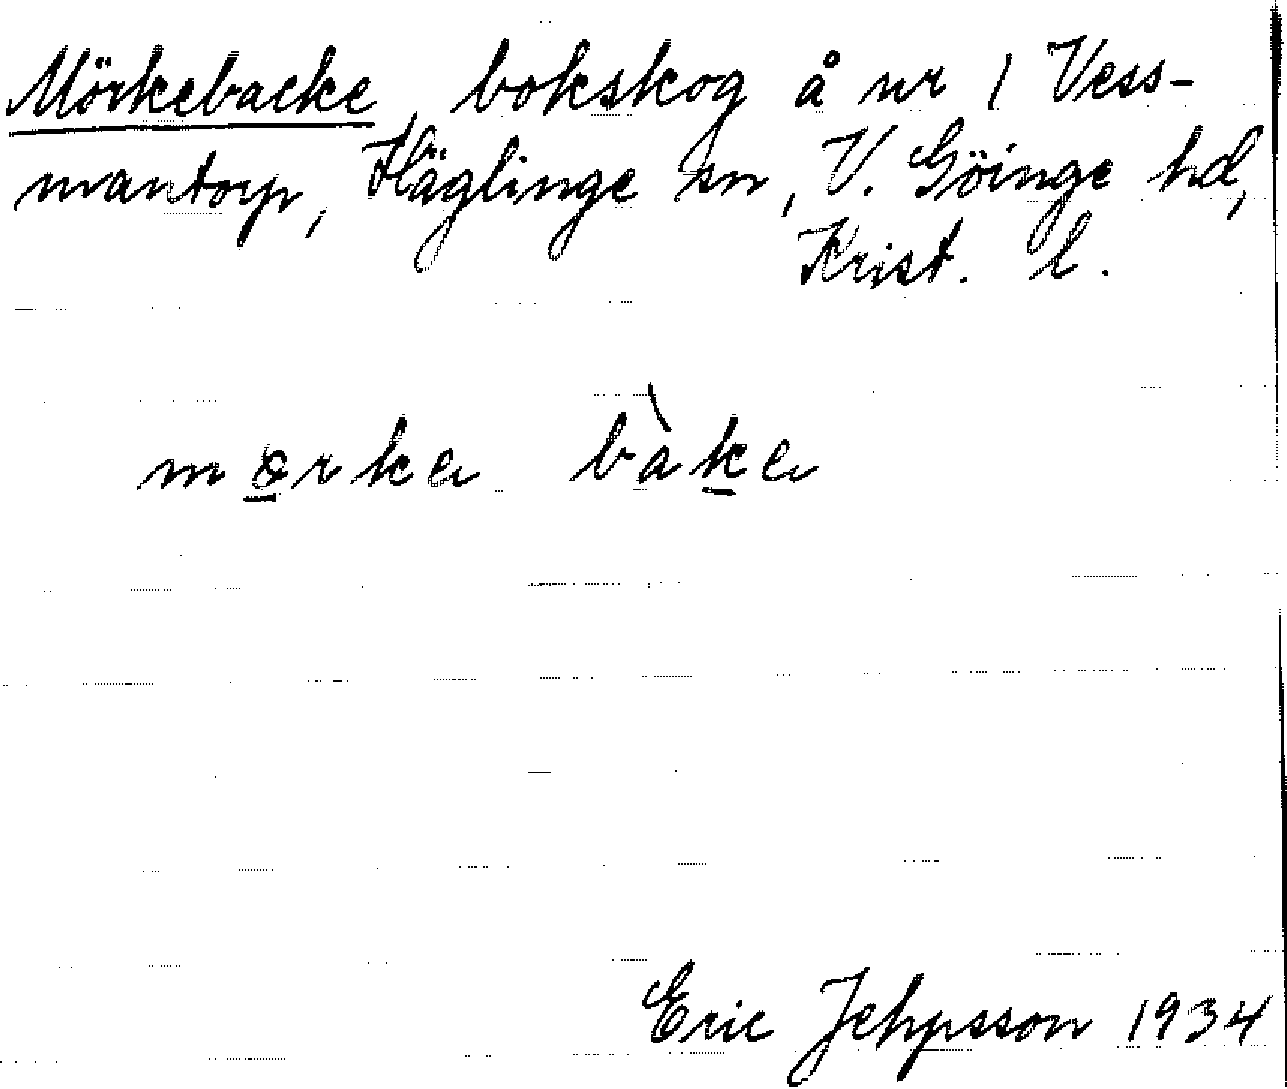 Mörkebacke, bokskog å nr 1 Vess-
mantorp, Häglinge sn, V. Göinge hd,
Krist. l.
mørkə bàkə
Eric Jehpsson 1934